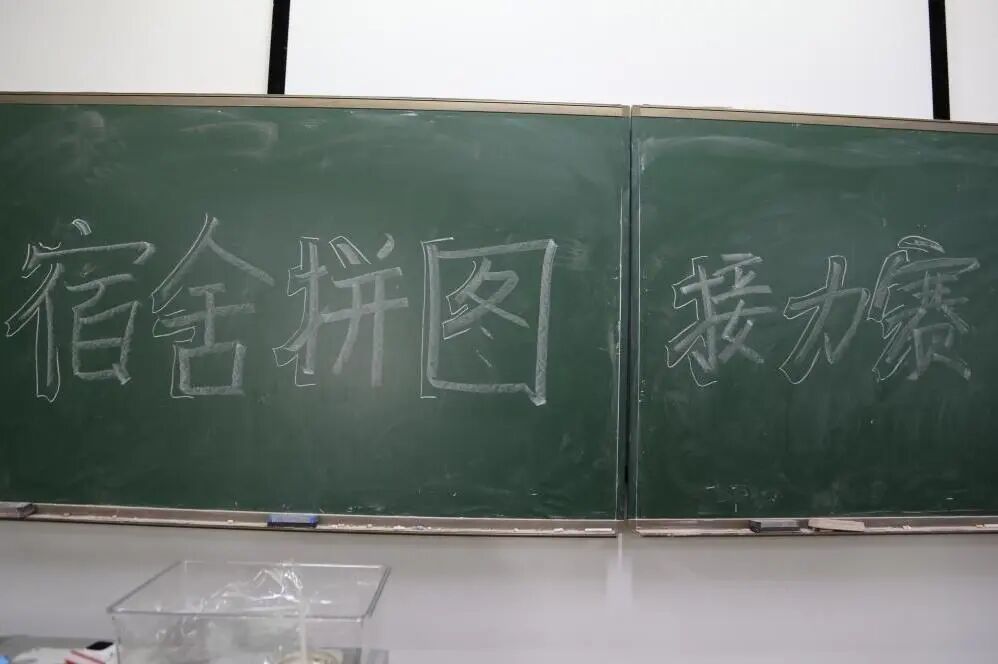 宿舍拼图 接力赛